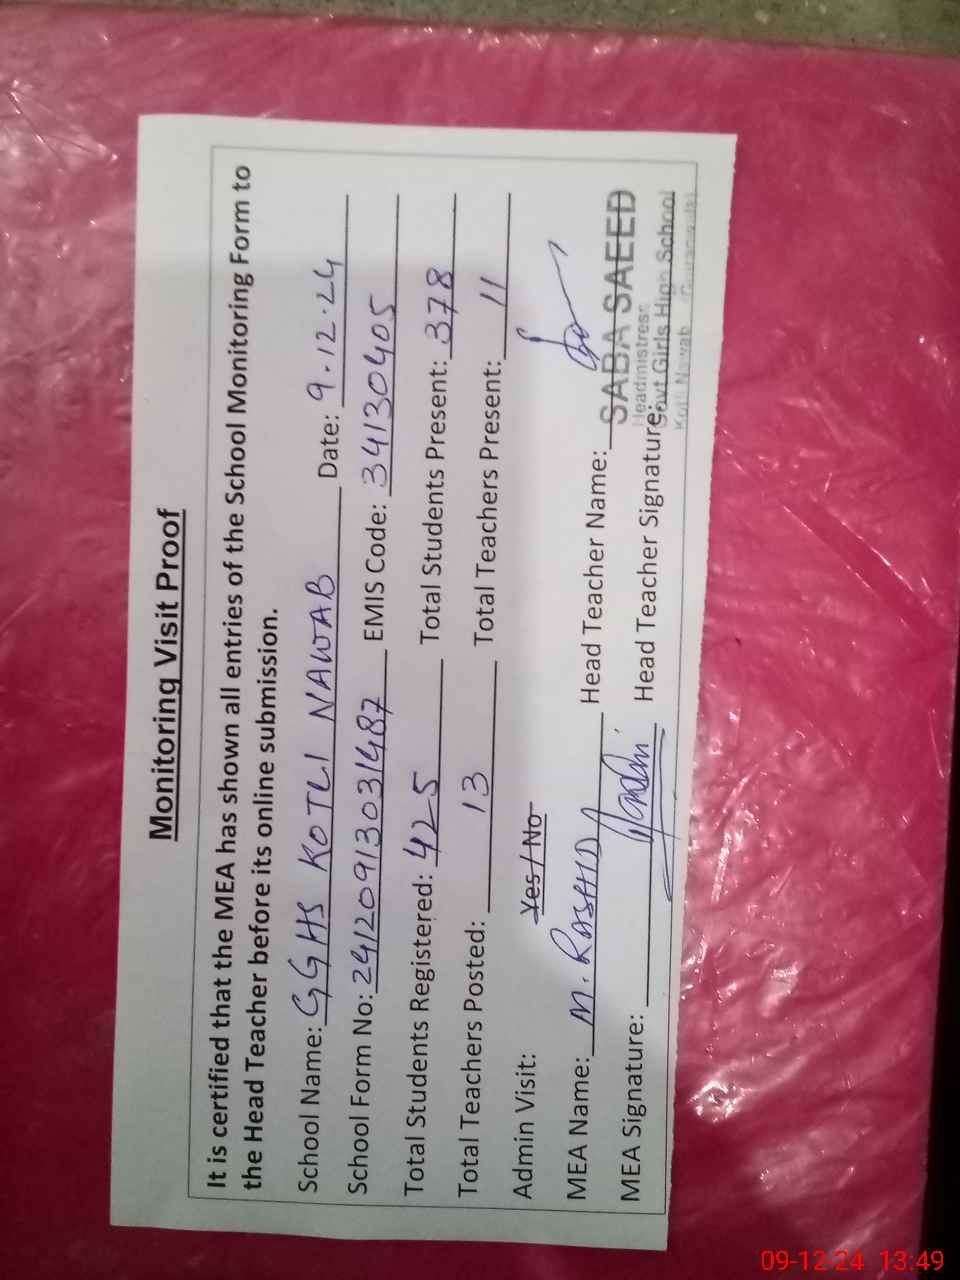 Monitoring Visit Proof
It is certified that the MEA has shown all entries of the School Monitoring Form to
the Head Teacher before its online submission.
School Name: GGHS KOTLI NAWAB Date: 9.12.24
School Form No: 24120913031487 EMIS Code: 34130405
Total Students Registered: 425 Total Students Present: 378
Total Teachers Posted: 13 Total Teachers Present: 11
Admin Visit: Yes / No
MEA Name: M. RASHID Head Teacher Name:
SABA SAEED
Headmistress
MEA Signature: Head Teacher Signature:
Govt Girls High School
Kotli Nawab
09-12-24 13:49